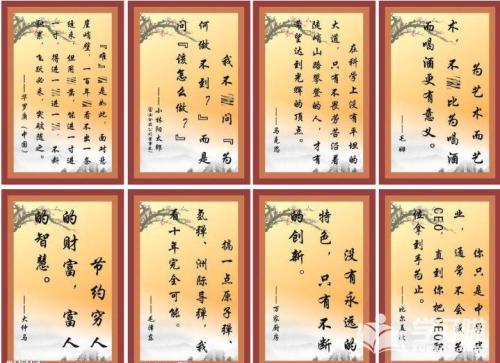 『难』是如此，面对悬
崖峭壁，一百年看不出一条
缝来，但用凿，能进一寸进
一寸，得进一进一，不断
积累，飞跃必来，突破随之。
——华罗庚（中国）
我不问『为
何做不到？』而是
问『该怎么做？』
——小林阳太郎
在科学上没有平坦的
大道，只有不畏劳苦沿着
陡峭山路攀登的人，才有
希望达到光辉的顶点。
——马克思
为艺术而艺
术，不比为喝酒
而喝酒更有意义。
——毛姆
节约穷人
的财富，富人
的智慧。
——大仲马
搞一点原子弹、
氢弹、洲际导弹，我
看十年完全可能。
——毛泽东
没有永远的
特色，只有不断
的创新。
——万家厨房
你只是中学毕
业，通常不会成为
CEO，直到你把CEO职
位拿到手为止。
——比尔盖茨
学习啦